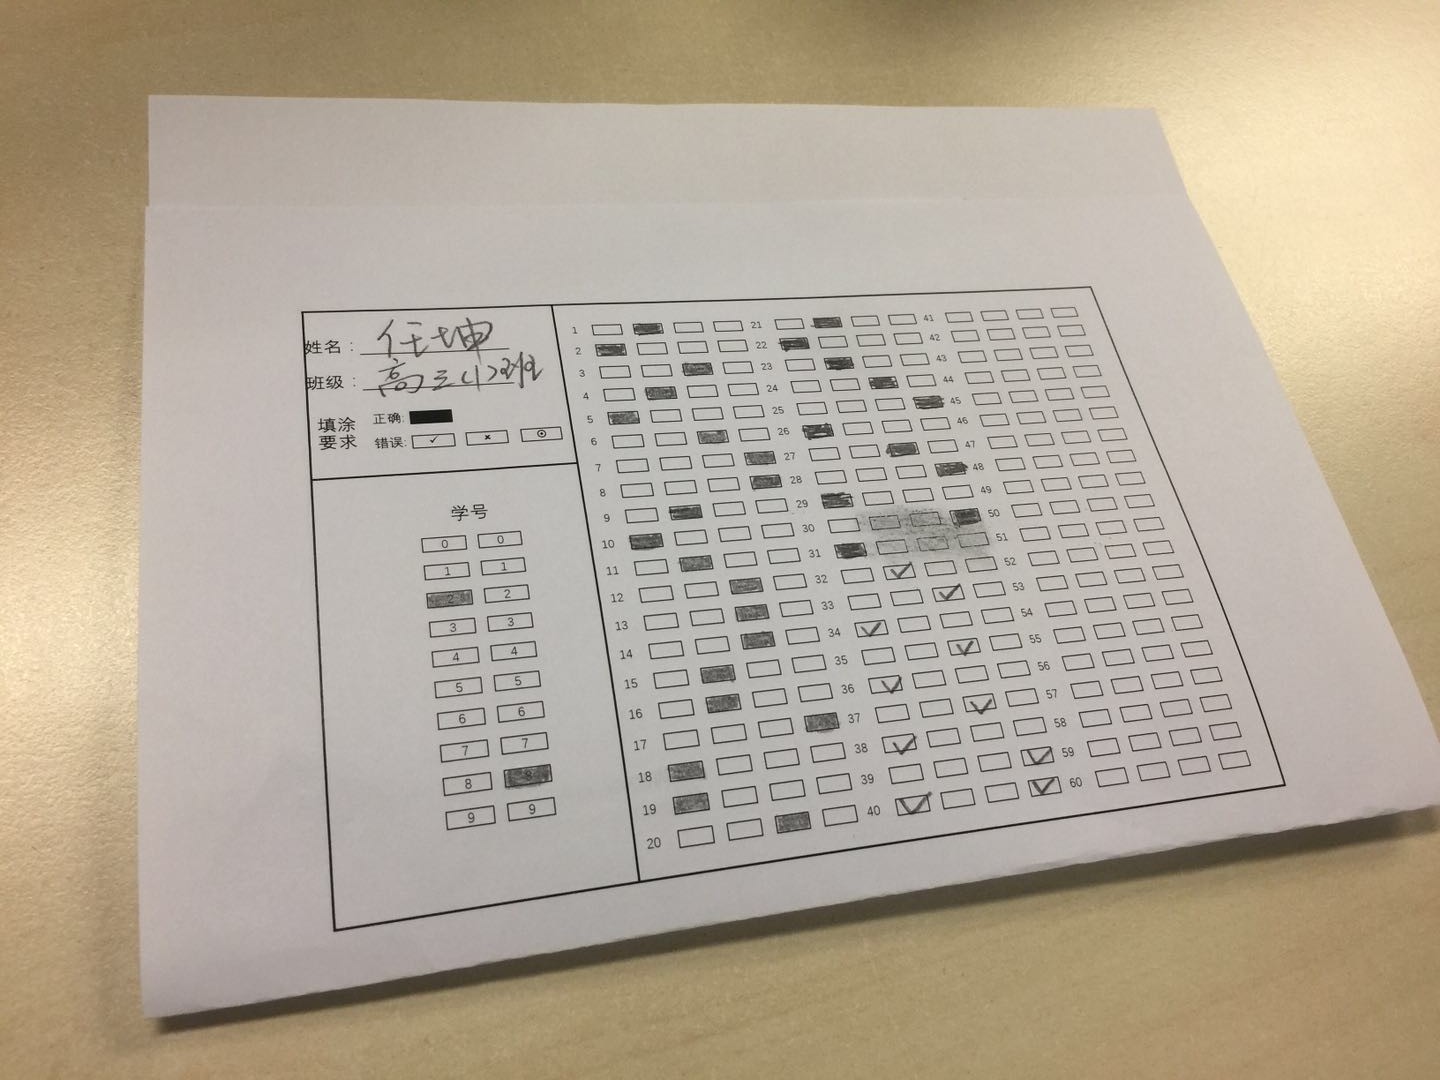 姓名： 任坤
班级： 高三(1)班
填涂要求
正确:
错误:
学号
0 0
1 1
2 2
3 3
4 4
5 5
6 6
7 7
8 8
9 9
1
2
3
4
5
6
7
8
9
10
11
12
13
14
15
16
17
18
19
20
21
22
23
24
25
26
27
28
29
30
31
32
33
34
35
36
37
38
39
40
41
42
43
44
45
46
47
48
49
50
51
52
53
54
55
56
57
58
59
60